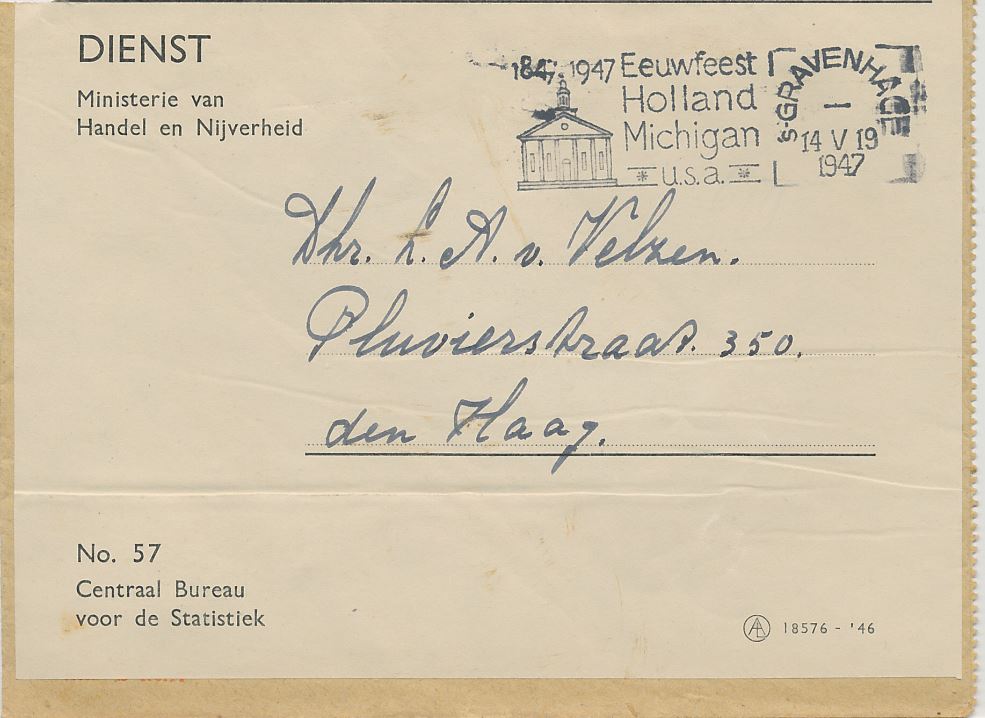 DIENST
Ministerie van
Handel en Nijverheid
1847 1947 Eeuwfeest
Holland
Michigan
u.s.a.
's-GRAVENHAGE
1
14 V 19
1947
Dhr. L. A. v. Velzen.
Pluvierstraat. 350.
den Haag.
No. 57
Centraal Bureau
voor de Statistiek
18576 - '46